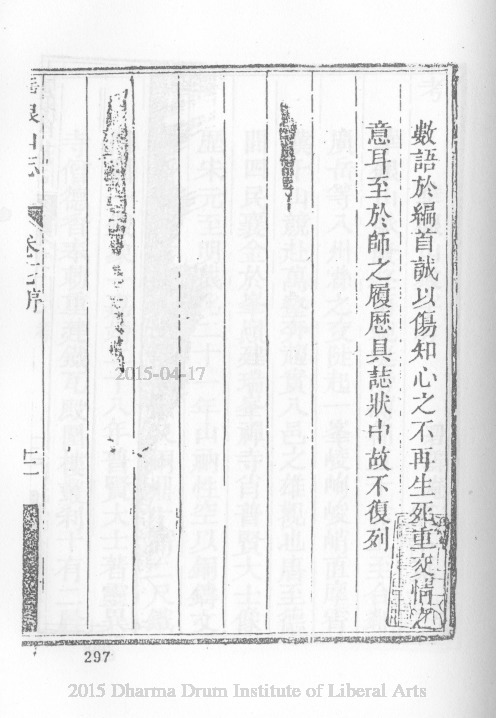 數語於編首誠以傷知心之不再生死重交情之
意耳至於師之履歷具誌狀中故不復列
山志
卷十七序
十一
2015-04-17
297
2015 Dharma Drum Institute of Liberal Arts